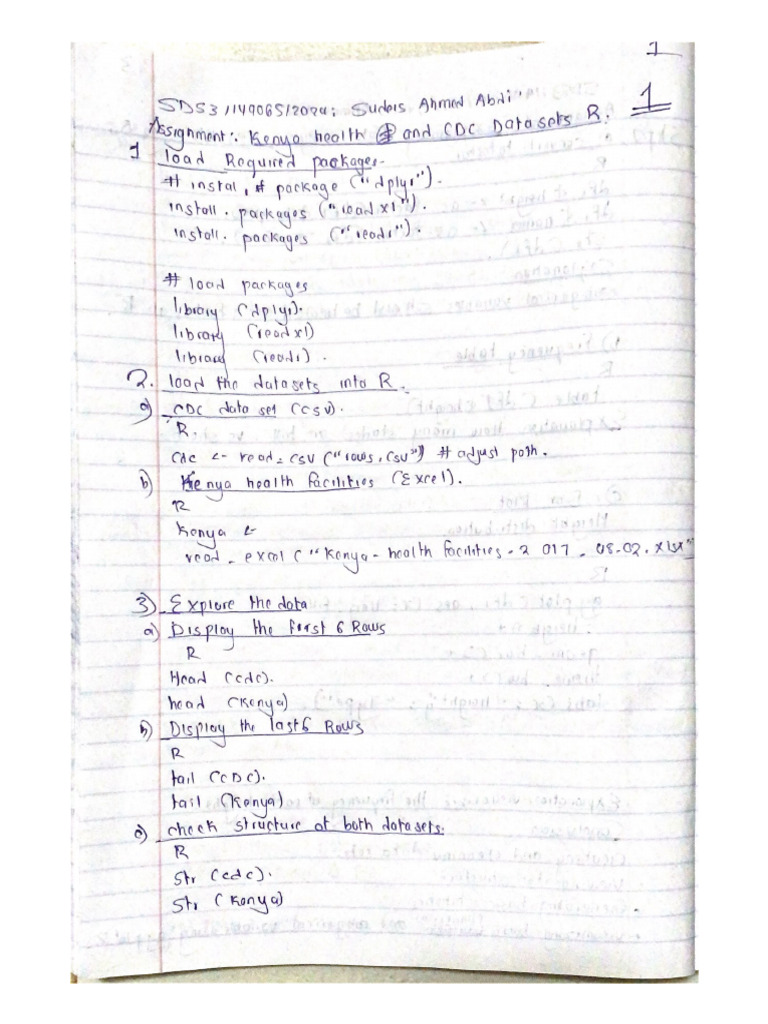 1
SDS3/149065/2024: Sudeis Ahmed Abdi"
1
Assignment:. Kenya health and CDC Datasets R.
1 load Required packages.
# instal, # package ("dplyr").
install. packages ("readxl").
install. packages ("readr").
# load packages
library (dplyr).
library (readxl)
library (readr).
2. load the datasets into R.
a) CDC data set (csv).
R.
cdc <- read = csv ("rows, csv") # adjust path.
b) Kenya health facilities (Excel).
R
Kenya <-
read _ excel ("Kenya - health facilities - 2017 _ 08-02. xlsx"
3) Explore the data
a) Display the first 6 Rows
R
Head (cdc).
head (Kenya)
b) Display the last 6 Rows
R
tail (CDC).
tail (Kenya)
c) check structure of both datasets.
R
Str (cdc).
Str (Kenya)